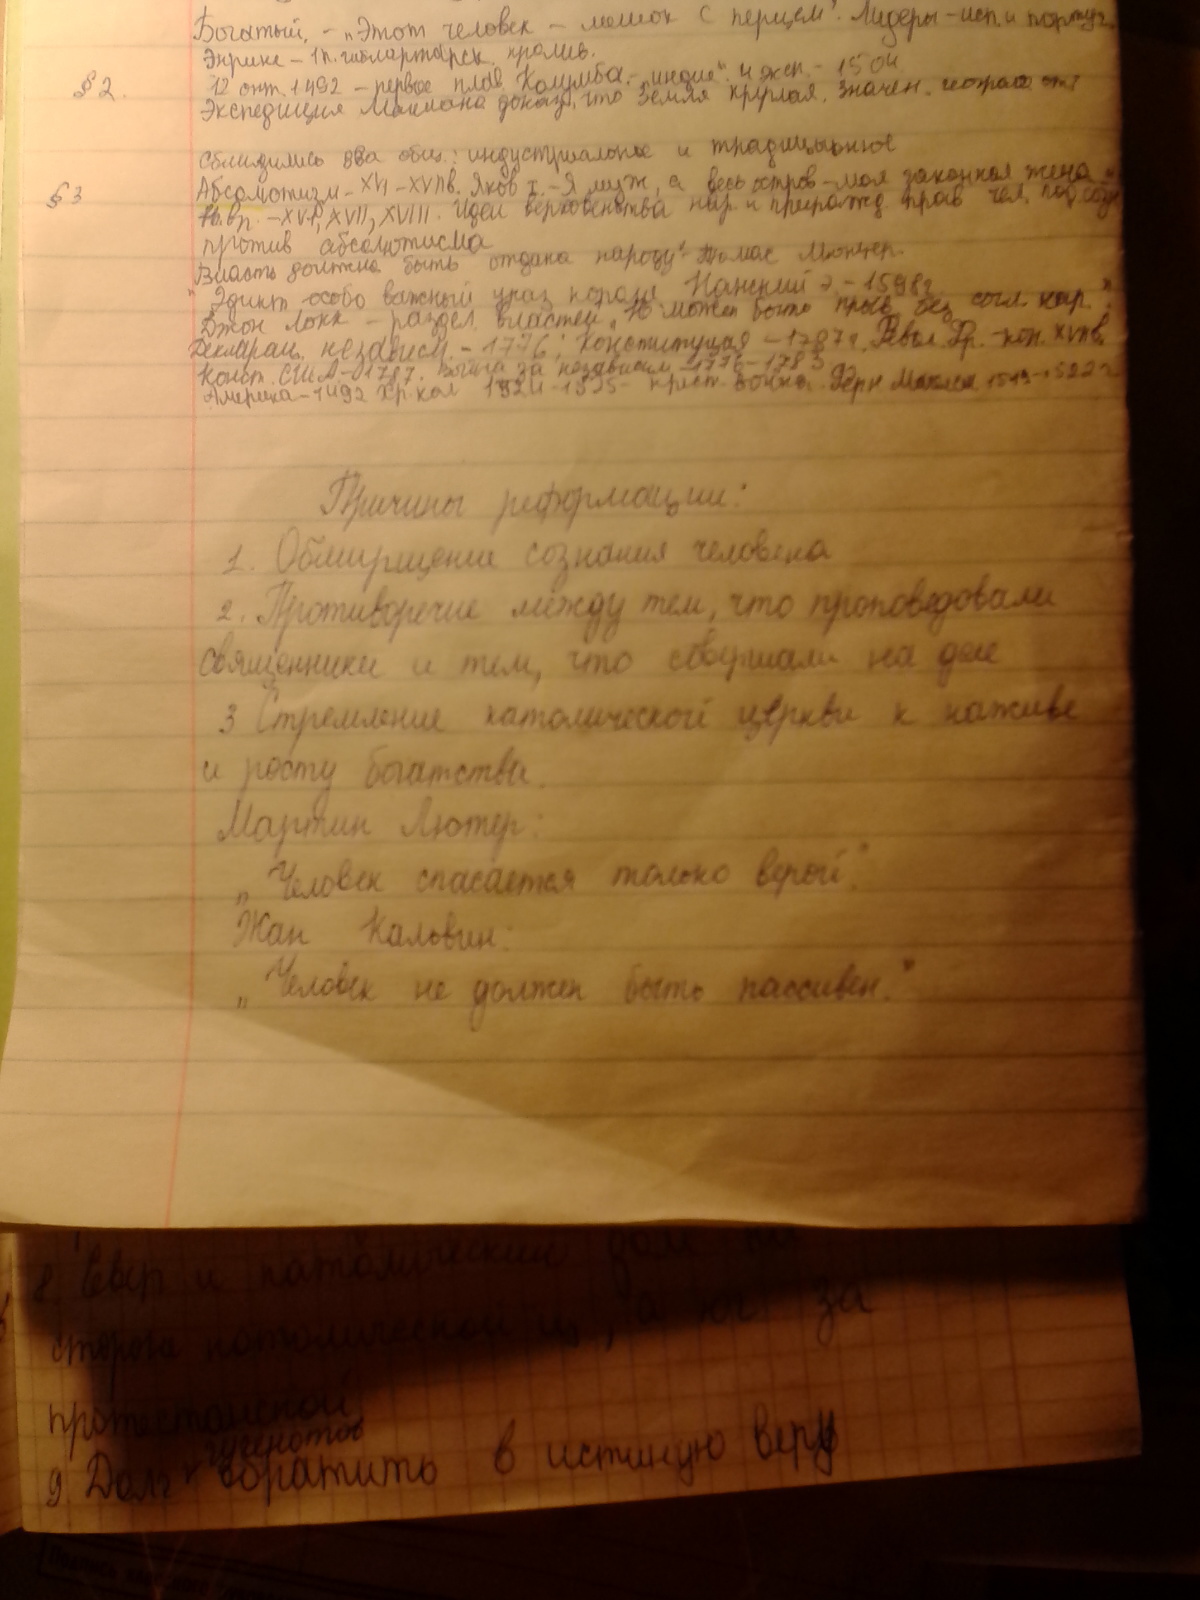 Богатый, - „Этот человек – мешок с перцем". Лидеры – исп. и португ.
Энрике – 1 п. гибларта́рск. пролив.
§ 2. 12 окт. 1492 – первое плав. Колумба. „индию". и жсп. – 1504
Экспедиция Магеллана доказ, что Земля круглая. Значен.
сблизились два общ.: индустриальное и традиционное
§ 3 Абсолютизм – XVI – XVIIв. Яков I. – Я муж, а весь остров – моя законная жена"
Н. вр. – XVI, XVII, XVIII. Идеи верховенства нар. и прирожд. прав чел. под
против абсолютисма
Власть должна быть отдана народу" Томас Мюнцер.
" Эдикт – особо важный указ короля Нанский э. – 1598г.
Джон Локк – раздел. властей „Не может быть прав. без согл. нар."
Декларац. независим. – 1776; Конституция – 1787г. Револ. Фр. – кон. XVIIIв.
Конст. США – 1787. Война за независим. 1776 – 1783
Америка – 1492 Хр. кол 1524 – 1525 – крест. война. Ферн Магелл 1519 – 1522г
Причины реформации:
1. Обмирщение сознания человека
2. Противоречие между тем, что проповедовали
священники и тем, что совершали на деле
3 Стремление католической церкви к наживе
и росту богатства.
Мартин Лютер:
„Человек спасается только верой".
Жан Кальвин:
„Человек не должен быть пассивен."
8. Север и католический дом
сторона католической ц, а юг за
протестанской
гугенотов
9 Долг обратить в истиную веру